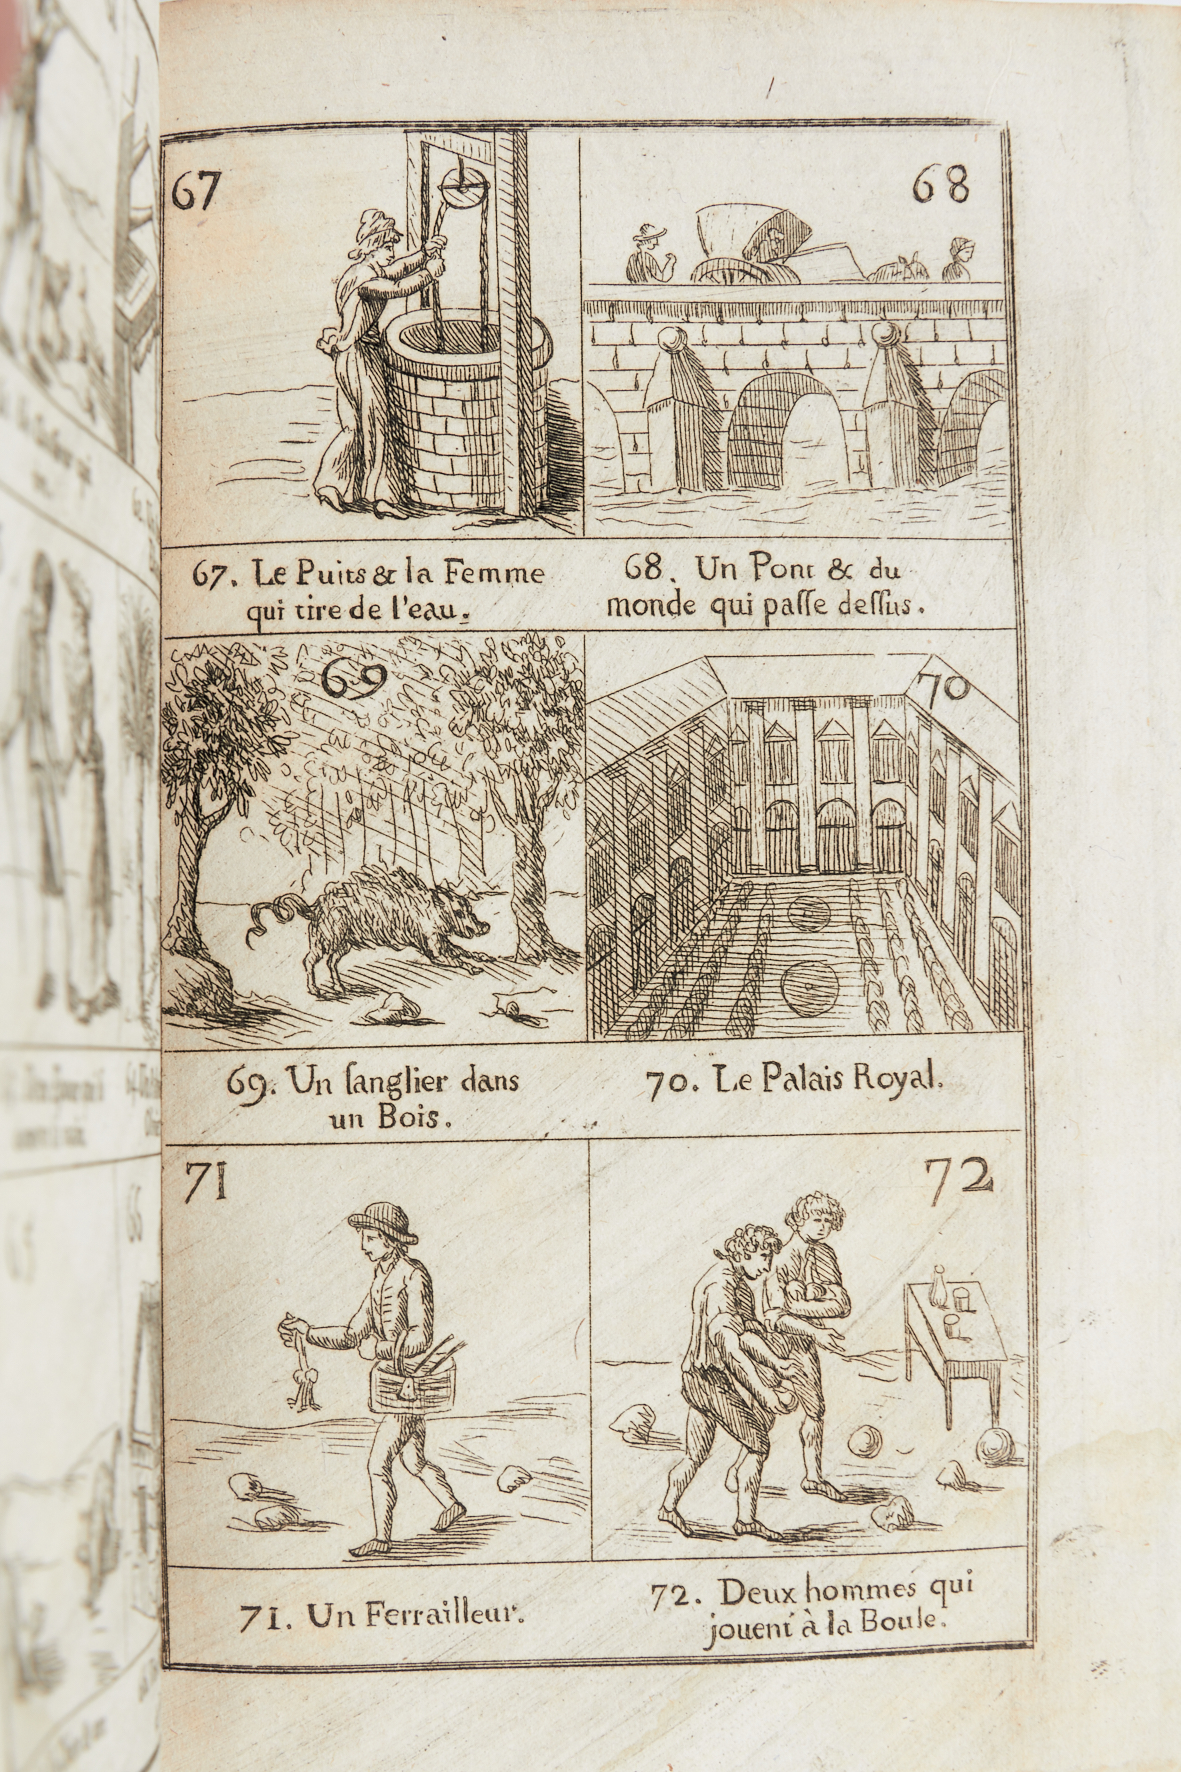 67
68
67. Le Puits & la Femme
qui tire de l'eau.
68. Un Pont & du
monde qui paſſe deſſus.
69
70
69. Un ſanglier dans
un Bois.
70. Le Palais Royal.
71
72
71. Un Ferrailleur.
72. Deux hommes qui
jouent à la Boule.
66